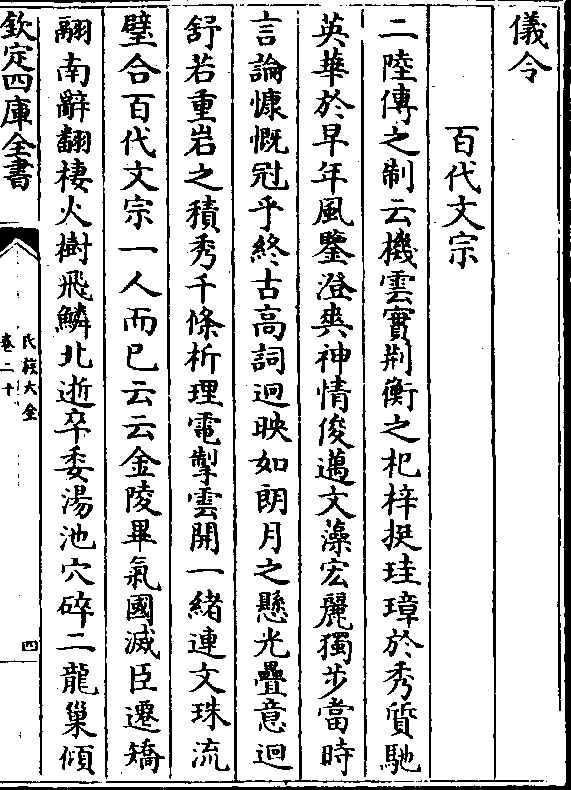 儀令
百代文宗
二陸傳之制云機雲實荆衡之杞梓挺珪璋於秀質馳
英華於早年風鑒澄爽神情俊邁文藻宏麗獨步當時
言論慷慨冠乎終古高詞迥映如朗月之懸光疊意迴
舒若重岩之積秀千條析理電掣雲開一緒連文珠流
璧合百代文宗一人而已云云金陵畢氣國滅臣遷矯
翮南辭翻棲火樹飛鱗北逝卒委湯池穴碎二龍巢傾
欽定四庫全書
氏族大全
卷二十
四